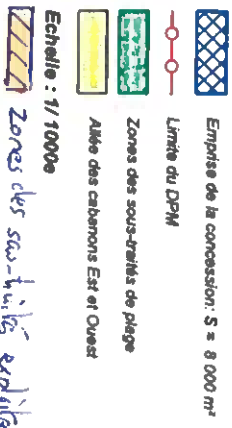 Emprise de la concession: S = 8 000 m²
Limite du DPM
Zones des sous-traités de plage
Allée des cabanons Est et Ouest
Echelle : 1/1000e
Zones des sous-traités